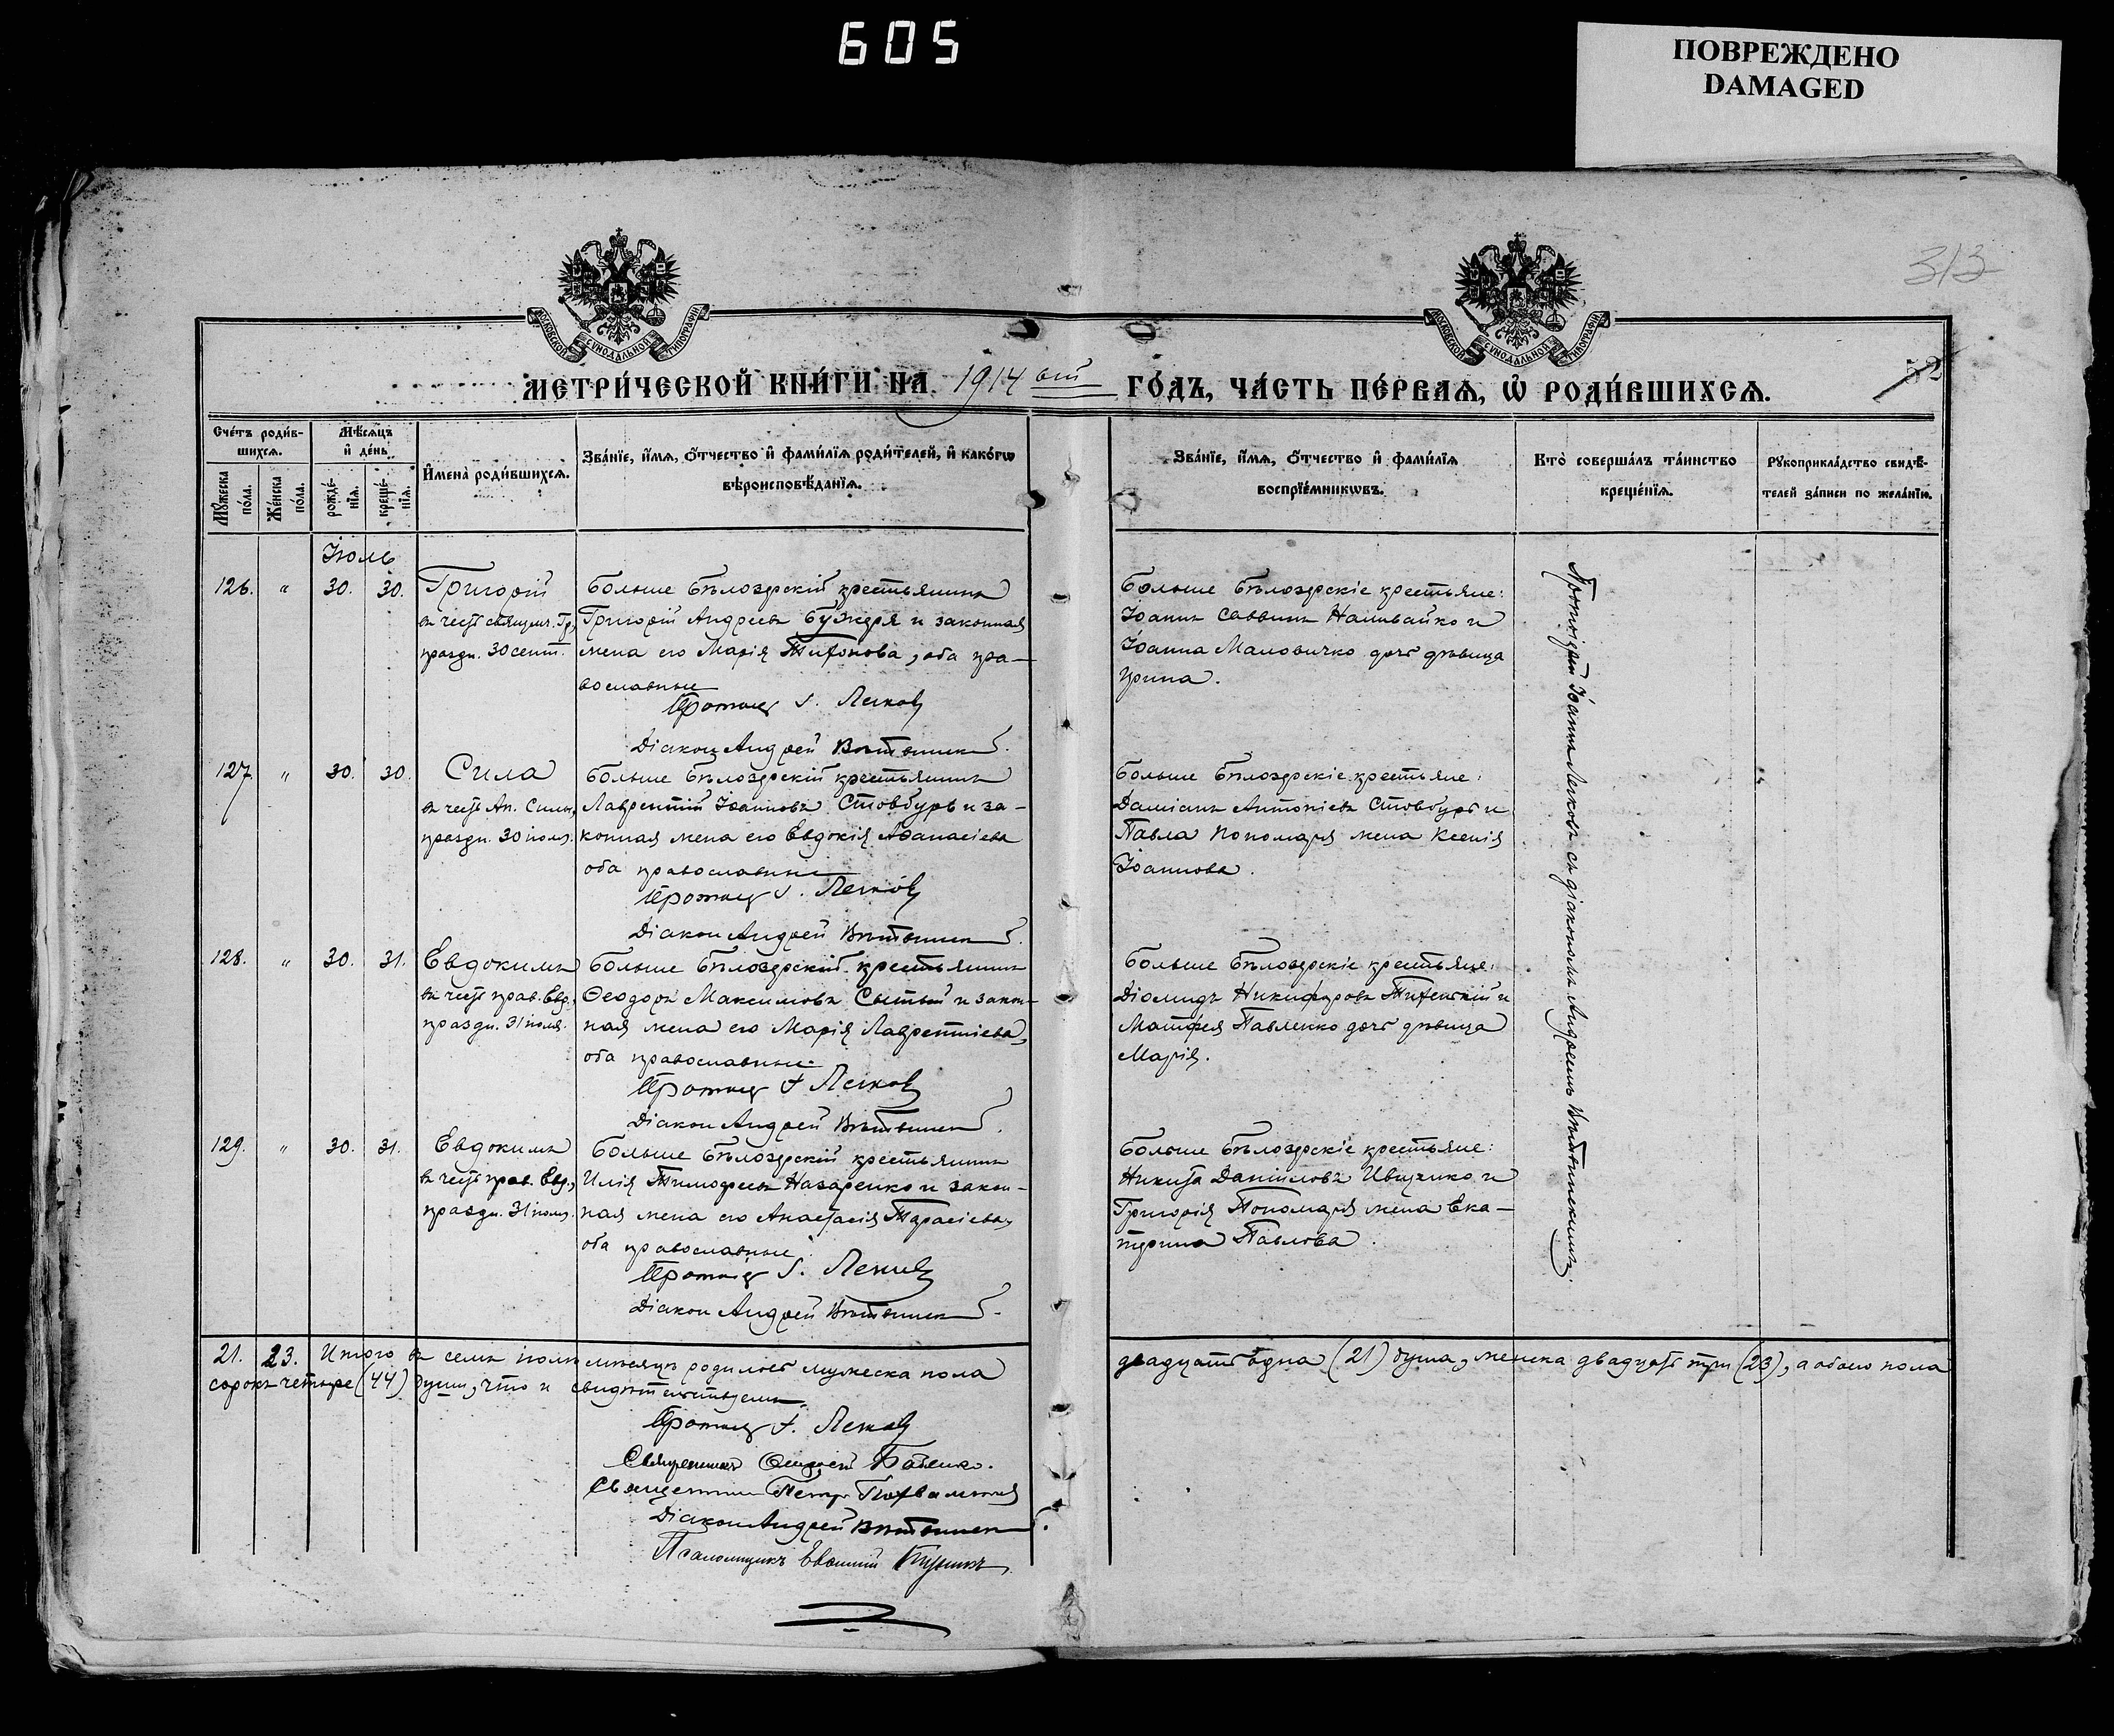 605
ПОВРЕЖДЕНО
DAMAGED
313
МОСКОВСКОЙ СѴНОДАЛЬНОЙ ТИПОГРАФІИ
МОСКОВСКОЙ СѴНОДАЛЬНОЙ ТИПОГРАФІИ
52
МЕТРИ́ЧЕСКОЙ КНИ́ГИ НА 1914 ый ГО́ДЪ, ЧА́СТЬ ПЕ́РВАѦ, Ѡ҆ РОДИ́ВШИХСѦ.
Сче́тъ роди́в-
шихсѧ.
Мꙋ́жеска
по́ла.
Же́нска
по́ла.
Мѣ́сѧцъ
и҆ де́нь
рожде́-
нїѧ.
креще́-
нїѧ.
И҆мена̀ роди́вшихсѧ.
Зва́нїе, и҆́мѧ, ѻ҆́тчество и҆ фами́лїѧ роди́телей, и҆ како́гѡ
вѣроисповѣ́данїѧ.
Зва́нїе, и҆́мѧ, ѻ҆́тчество и҆ фами́лїѧ
воспрїе́мникѡвъ.
Кто̀ соверша́лъ та́инство
креще́нїѧ.
Рꙋкоприкла́дство свидѣ́-
телей за́писи по жела́нїю.
Іюль
126. " 30. 30. Григорій
въ честь священм. Гр.,
праздн. 30 сент.
Больше Бѣлозерскій крестьянинъ
Григорій Андреевъ Буждря и законная
жена его Марія Тихонова, оба пра-
вославные
Протоіер. І. Легковъ
Діаконъ Андрей
Больше Бѣлозерскіе крестьяне:
Іоаннъ Саввинъ Наливайко и
Іоанна Маловичко дочь дѣвица
Ирина.
Протоіерей Іоаннъ Легковъ съ діакономъ Андреемъ
127. " 30. 30. Сила
въ честь Ап. Силы,
праздн. 30 іюля.
Больше Бѣлозерскій крестьянинъ
Лаврентій Іоанновъ Стовбуръ и за-
конная жена его Евдокія Аѳанасіева
оба православные
Протоіер. І. Легковъ
Діаконъ Андрей
Больше Бѣлозерскіе крестьяне:
Даміанъ Антоніевъ Стовбуръ и
Павла Пономаря жена Ксенія
Іоаннова.
128. " 30. 31. Евдокимъ
въ честь прав. Евд.,
праздн. 31 іюля.
Больше Бѣлозерскій крестьянинъ
Ѳеодоръ Максимовъ Сытый и закон-
ная жена его Марія Лаврентіева,
оба православные
Протоіер. І. Легковъ
Діаконъ Андрей
Больше Бѣлозерскіе крестьяне:
Діомидъ Никифоровъ и
Матфея Павленко дочь дѣвица
Марія.
129. " 30. 31. Евдокимъ
въ честь прав. Евд.,
праздн. 31 іюля.
Больше Бѣлозерскій крестьянинъ
Илія Тимофеевъ Назаренко и закон-
ная жена его Анастасія Тарасіева,
оба православные
Протоіер. І. Легковъ
Діаконъ Андрей
Больше Бѣлозерскіе крестьяне:
Никита Даніиловъ Иващенко и
Григорія Пономаря жена Ека-
терина Павлова.
21. 23. Итого въ семъ іюлѣ мѣсяцѣ родилось мужеска пола двадцать одна (21) душа, женска двадцать три (23), а обоего пола
сорокъ четыре (44) души, что и свидѣтельствуемъ.
Протоіер. І. Легковъ
Священникъ Бабенко.
Священникъ Петръ
Діаконъ Андрей
Псаломщикъ Евѳимій